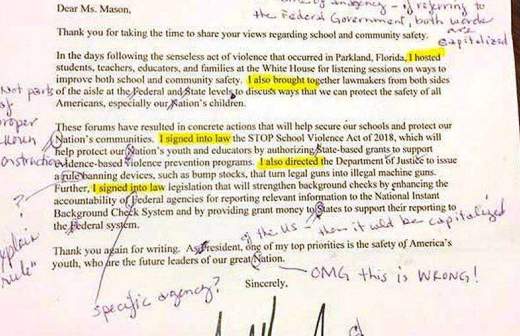 of Emergency - if referring to
the Federal Government, both words
are
capitalized
Dear Ms. Mason,
Thank you for taking the time to share your views regarding school and community safety.
In the days following the senseless act of violence that occurred in Parkland, Florida, I hosted
students, teachers, educators, and families at the White House for listening sessions on ways to
improve both school and community safety. I also brought together lawmakers from both sides
of the aisle at the Federal and State levels to discuss ways that we can protect the safety of all
Americans, especially our Nation's children.
Not parts
of
proper
noun
construction
These forums have resulted in concrete actions that will help secure our schools and protect our
Nation's communities. I signed into law the STOP School Violence Act of 2018, which will
help protect our Nation's youth and educators by authorizing State-based grants to support
evidence-based violence prevention programs. I also directed the Department of Justice to issue
a rule banning devices, such as bump stocks, that turn legal guns into illegal machine guns.
Further, I signed into law legislation that will strengthen background checks by enhancing the
accountability of Federal agencies for reporting relevant information to the National Instant
Background Check System and by providing grant money to States to support their reporting to
the Federal system.
?
explain
"rule"
of the US - then it wld be capitalized
Thank you again for writing. As President, one of my top priorities is the safety of America's
youth, who are the future leaders of our great Nation.
OMG this is WRONG!
Sincerely,
specific agency?